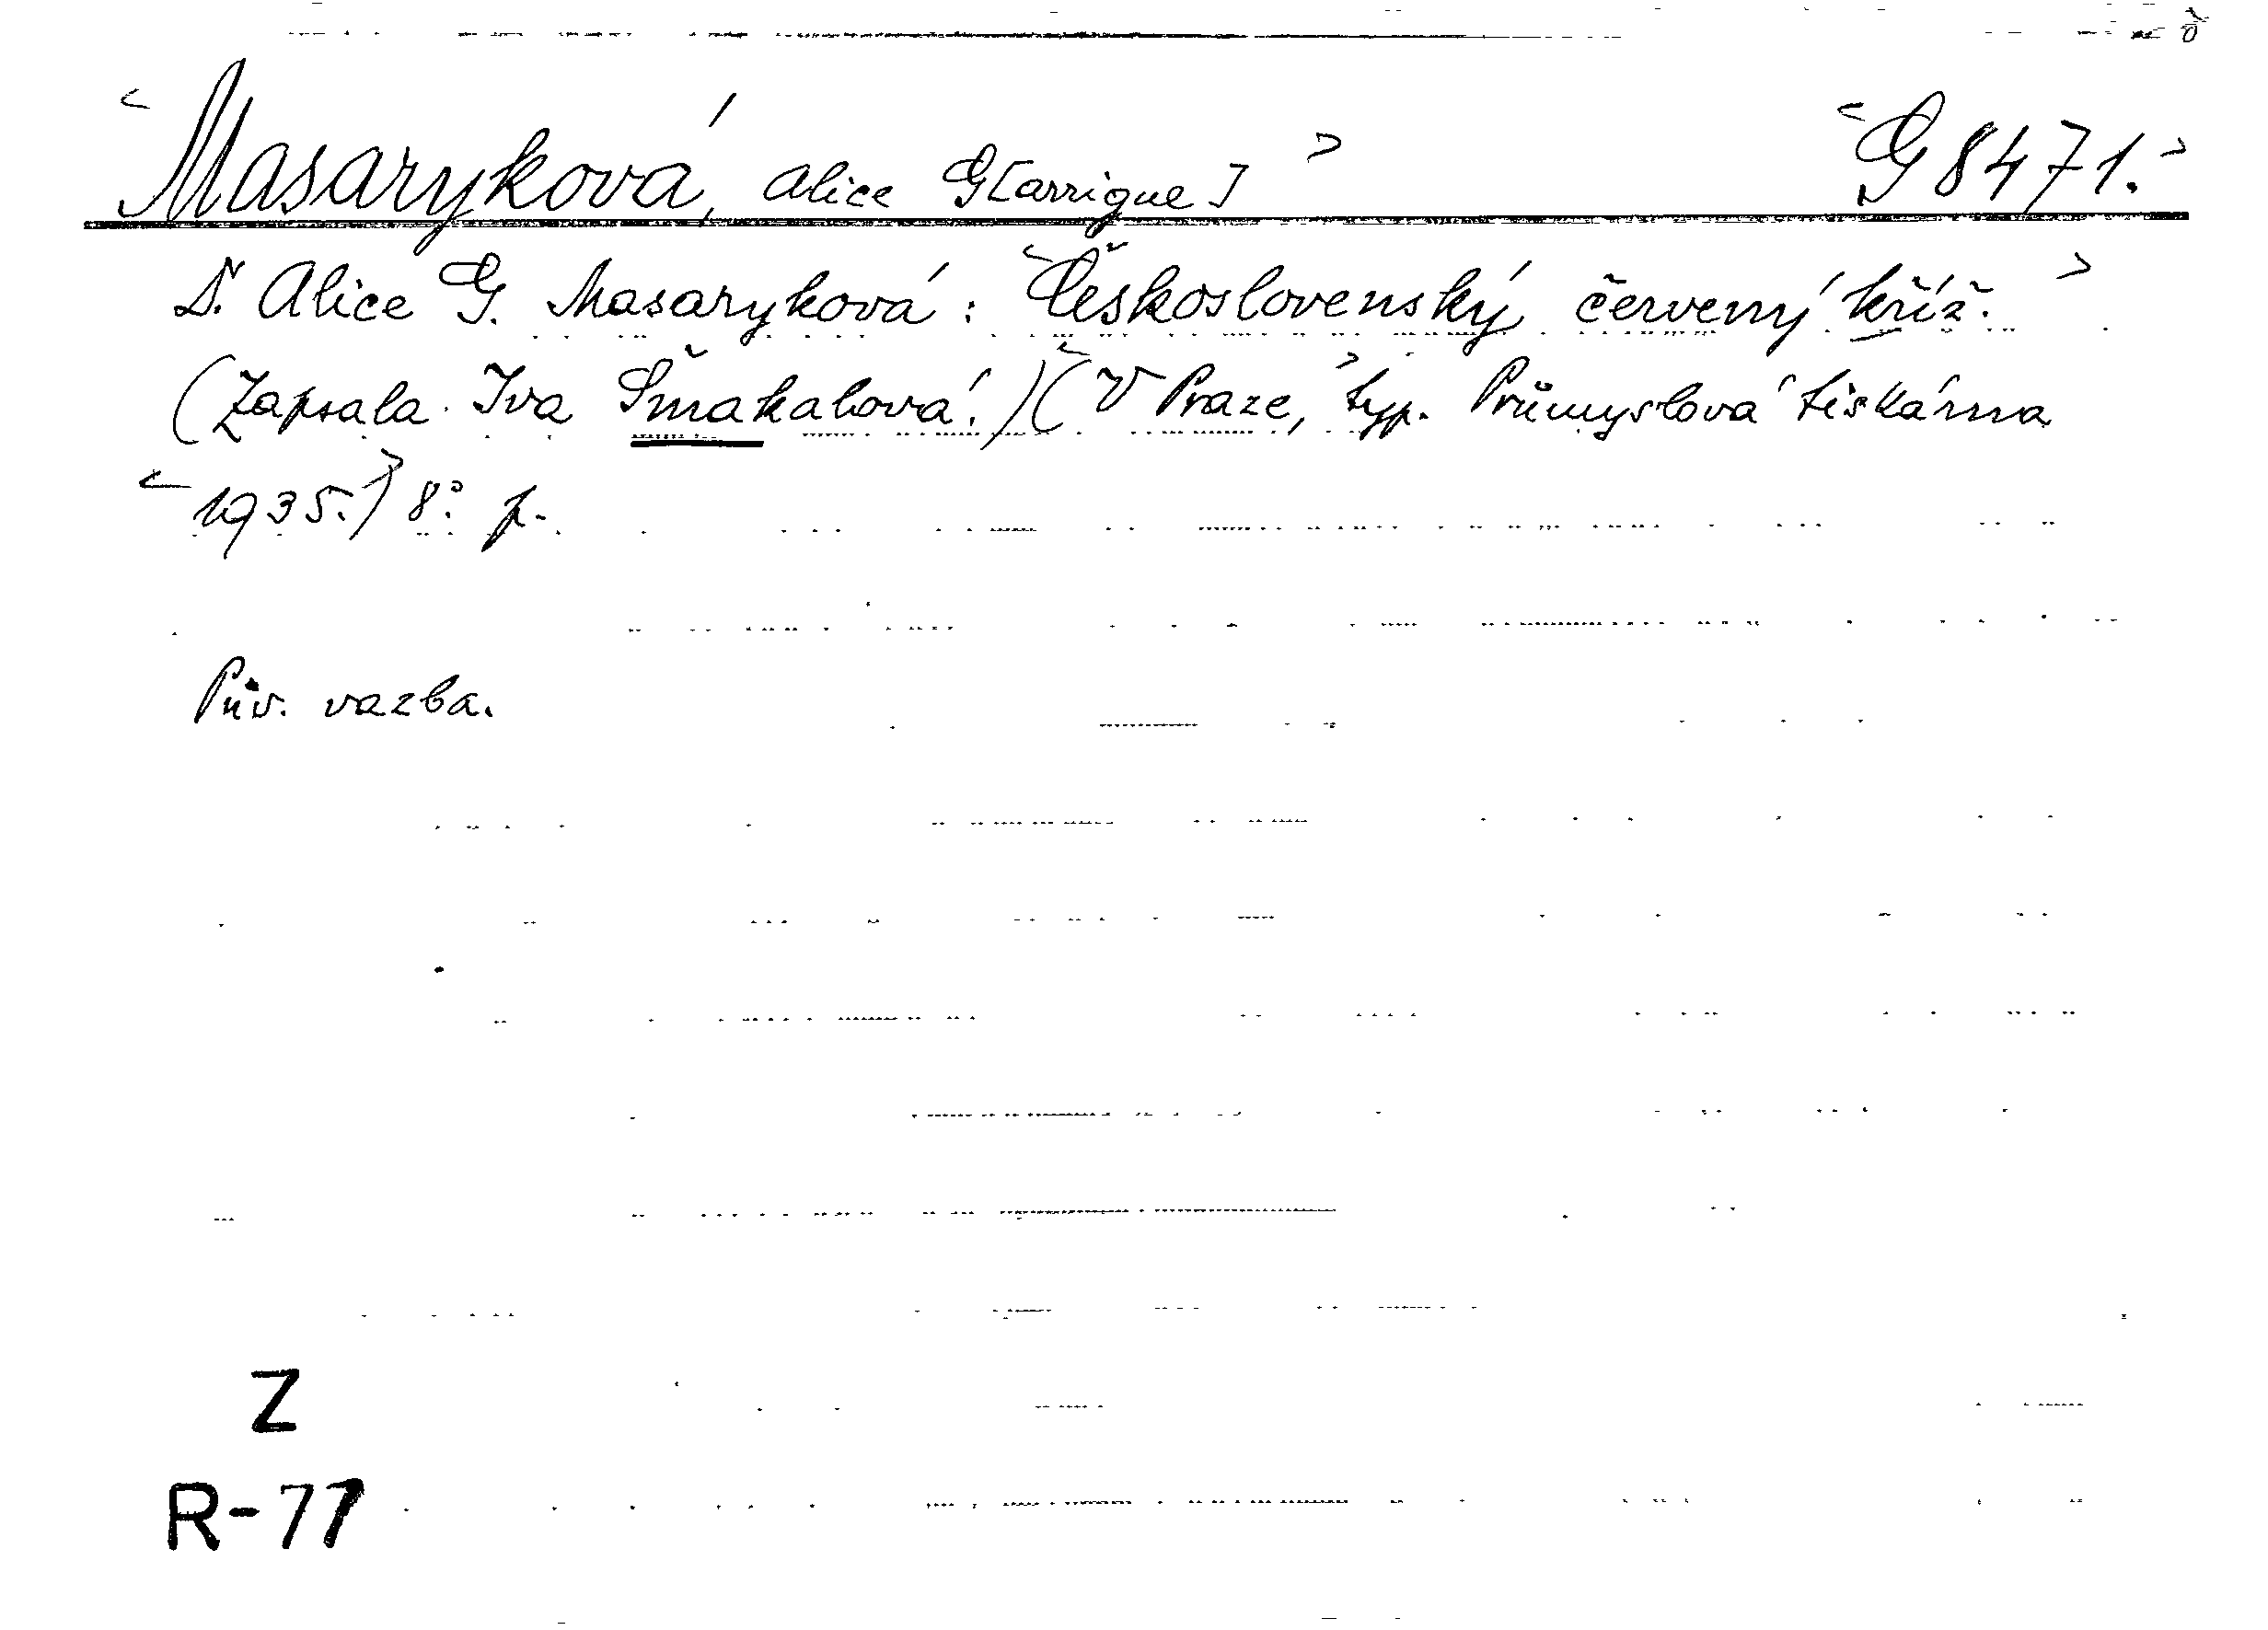 Masaryková, Alice G[arrigue] G 8471.
Dr. Alice G. Masaryková: Československý červený kříž.
(Zapsala Iva Šmakalová.) (V Praze, typ. Průmyslová tiskárna
1935.) 8° p.
Pův. vazba.
Z
R-77